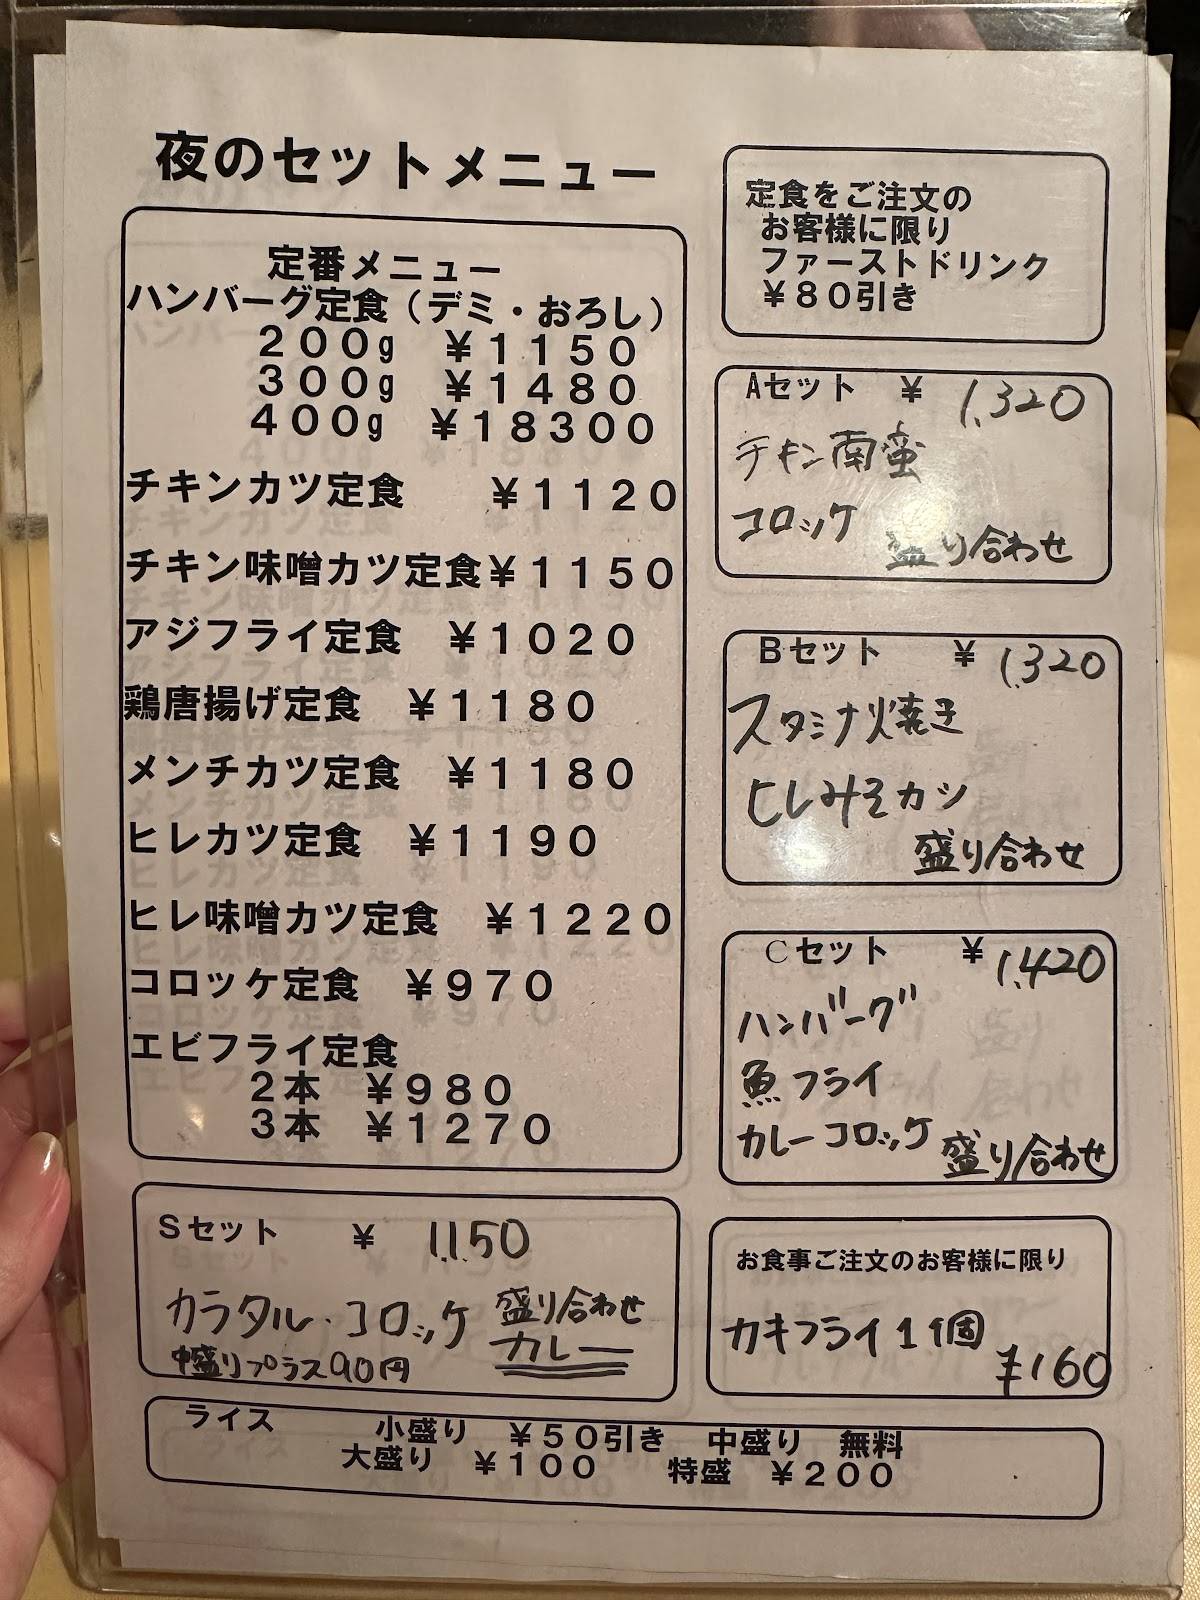 夜のセットメニュー
定番メニュー
ハンバーグ定食（デミ・おろし）
２００g ￥１１５０
３００g ￥１４８０
４００g ￥１８３００
チキンカツ定食 ￥１１２０
チキン味噌カツ定食￥１１５０
アジフライ定食 ￥１０２０
鶏唐揚げ定食 ￥１１８０
メンチカツ定食 ￥１１８０
ヒレカツ定食 ￥１１９０
ヒレ味噌カツ定食 ￥１２２０
コロッケ定食 ￥９７０
エビフライ定食
２本 ￥９８０
３本 ￥１２７０
Sセット ￥ 1,150
カラタル・コロッケ 盛り合わせ
カレー
中盛りプラス90円
定食をご注文の
お客様に限り
ファーストドリンク
￥８０引き
Aセット ￥ 1,320
チキン南蛮
コロッケ
盛り合わせ
Bセット ￥ 1,320
スタミナ焼き
ヒレみそカツ
盛り合わせ
Cセット ￥ 1,420
ハンバーグ
魚フライ
カレーコロッケ 盛り合わせ
お食事ご注文のお客様に限り
カキフライ1ヶ個
¥160
ライス 小盛り ￥５０引き 中盛り 無料
大盛り ￥１００ 特盛 ￥２００